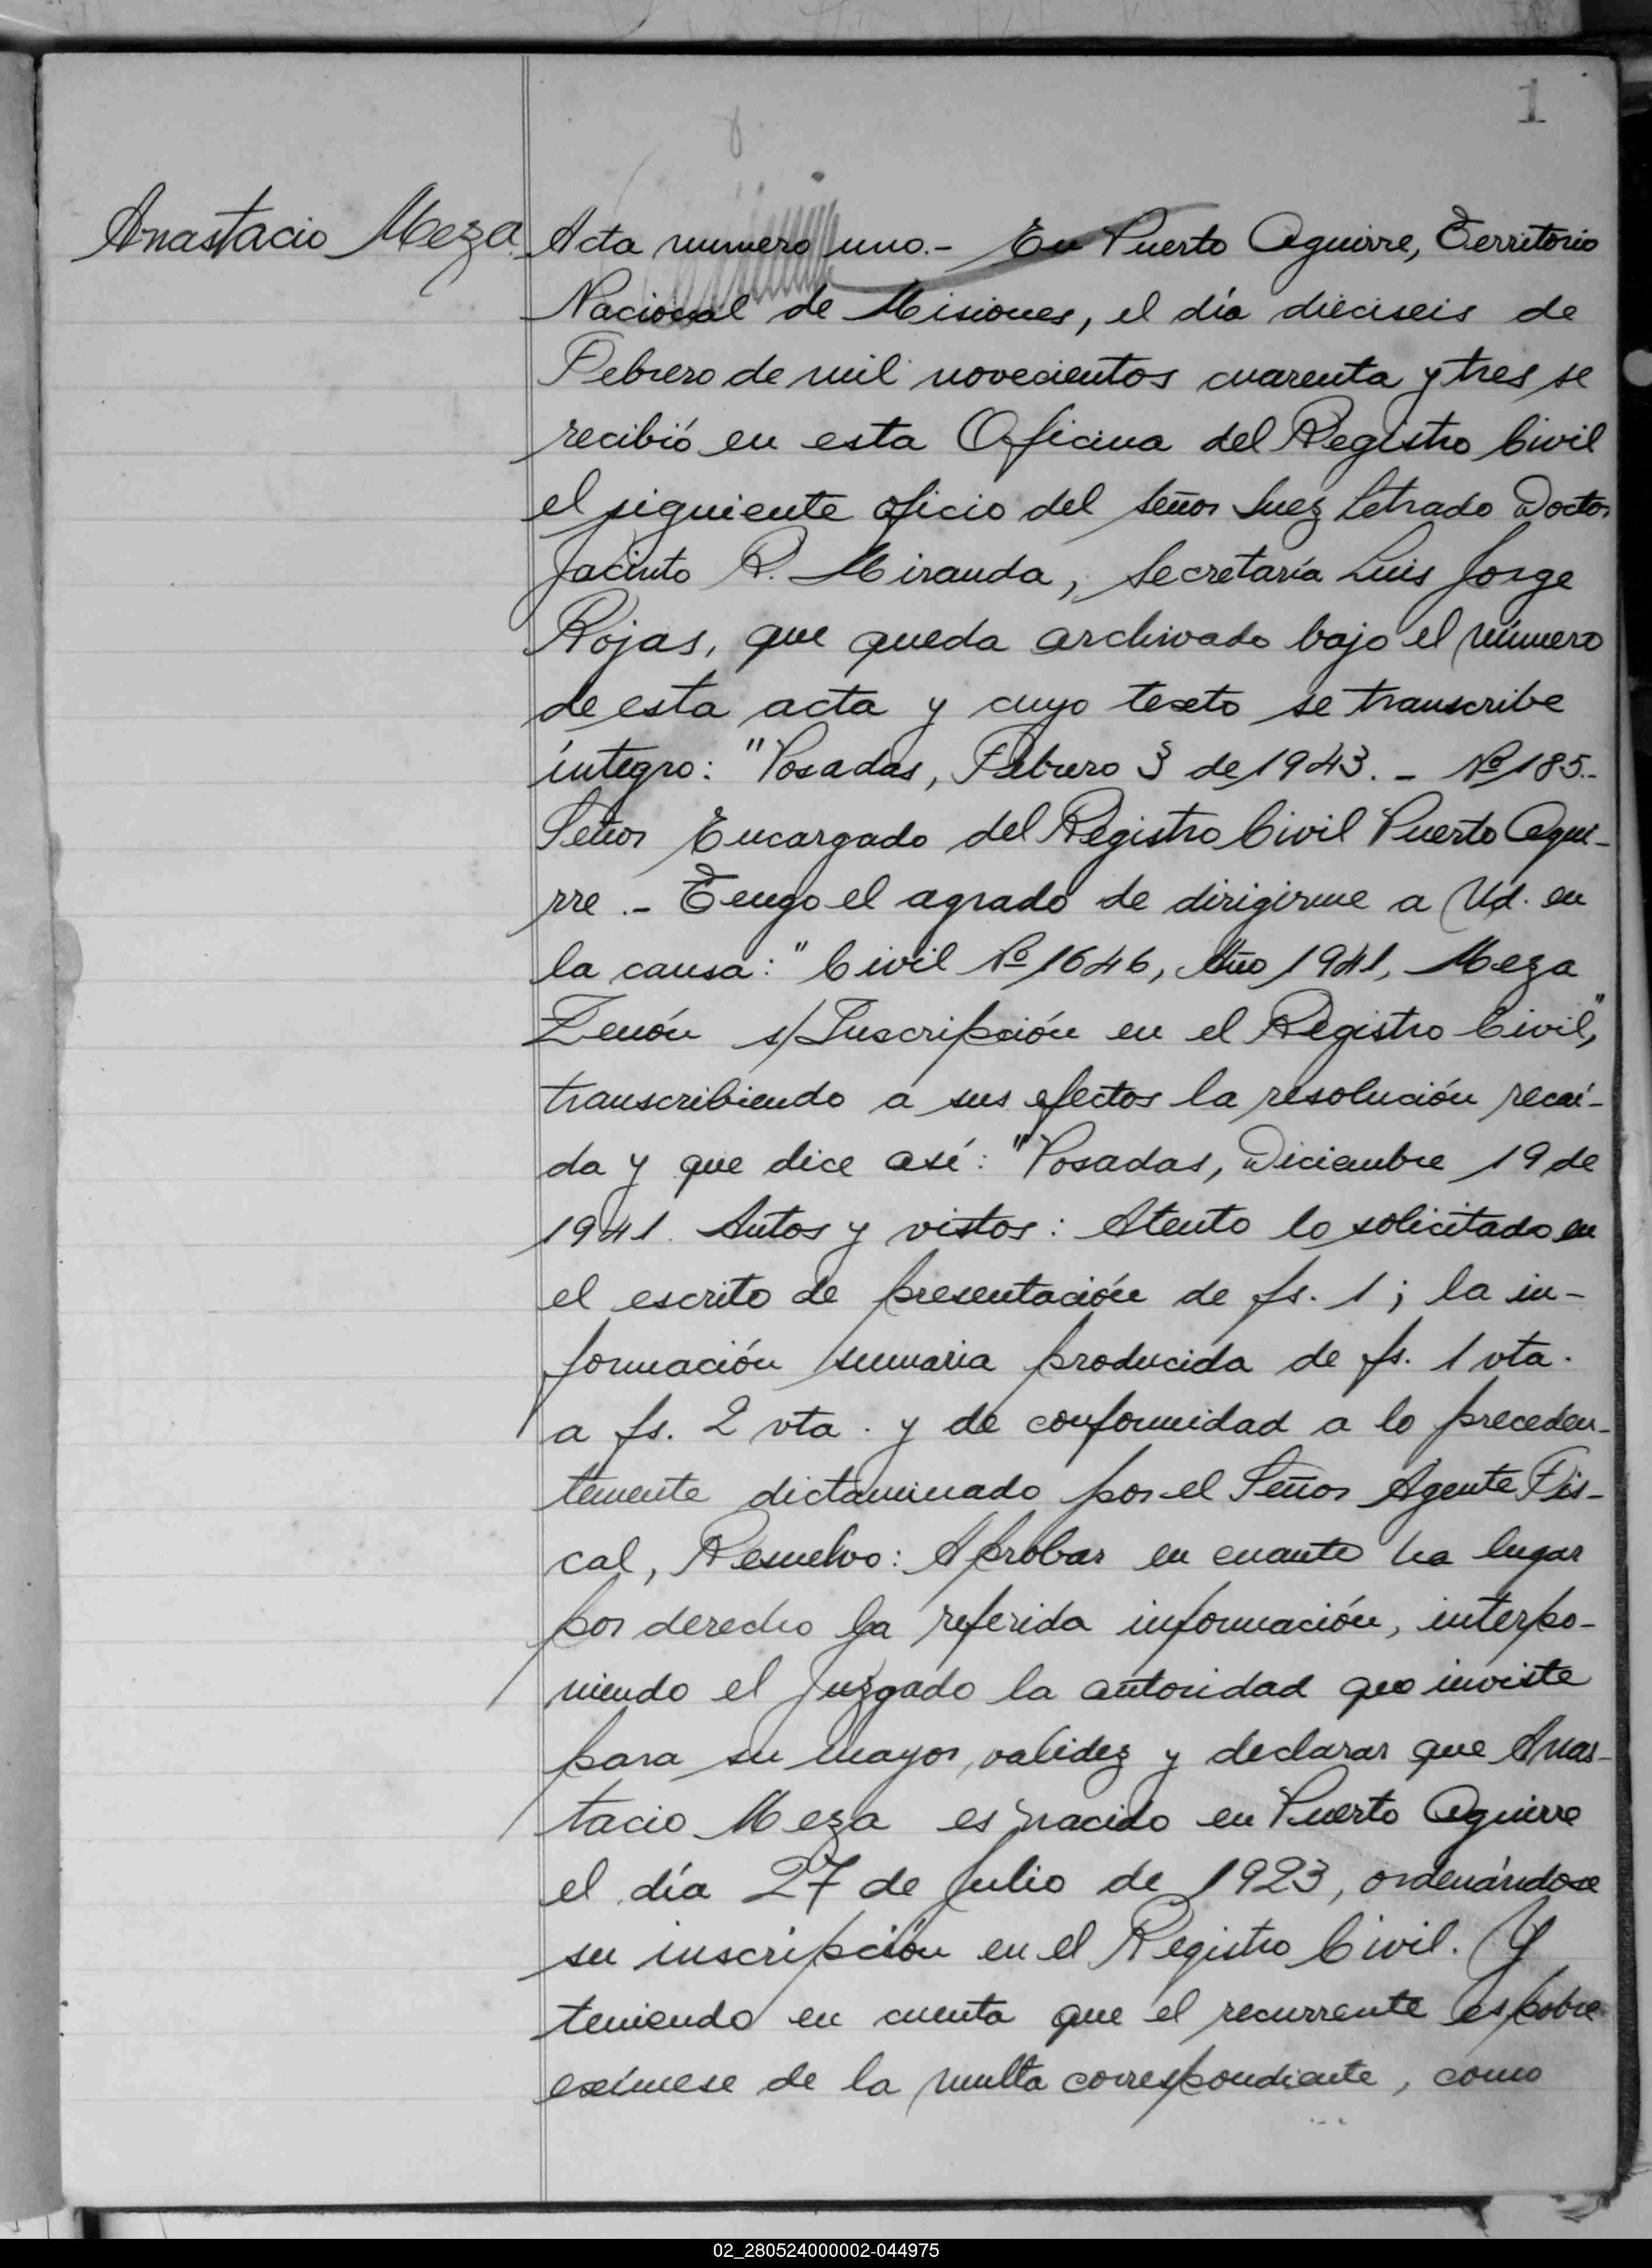 1
Anastacio Meza.
Acta numero uno.- En Puerto Aguirre, Territorio
Nacional de Misiones, el día dieciseis de
Febrero de mil novecientos cuarenta y tres se
recibió en esta Oficina del Registro Civil
el siguiente oficio del Señor Juez Letrado Doctor
Jacinto R. Miranda, Secretaría Luis Jorge
Rojas, que queda archivado bajo el número
de esta acta y cuyo texto se transcribe
íntegro: "Posadas, Febrero 3 de 1943.- Nº 185.-
Señor Encargado del Registro Civil Puerto Agui-
rre.- Tengo el agrado de dirigirme a Ud. en
la causa: "Civil Nº 1646, Año 1941, Meza
Zenón s/Inscripción en el Registro Civil",
transcribiendo a sus efectos la resolución recaí-
da y que dice así: "Posadas, Diciembre 19 de
1941. Autos y vistos: Atento lo solicitado en
el escrito de presentación de fs. 1; la in-
formación sumaria producida de fs. 1 vta.
a fs. 2 vta. y de conformidad a lo preceden-
temente dictaminado por el Señor Agente Fis-
cal, Resuelvo: Aprobar en cuanto ha lugar
por derecho la referida información, interpo-
niendo el Juzgado la autoridad que inviste
para su mayor validez y declarar que Anas-
tacio Meza es nacido en Puerto Aguirre
el día 27 de Julio de 1923, ordenándose
su inscripción en el Registro Civil. Y
teniendo en cuenta que el recurrente es pobre
exímese de la multa correspondiente, como
02_280524000002-044975